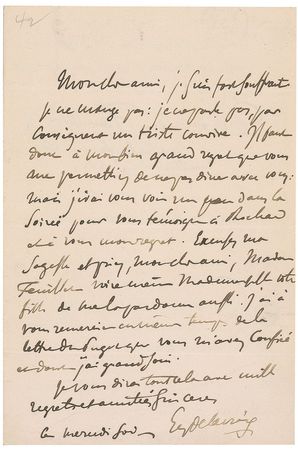 42
Mon cher ami, je suis fort souffrant
je ne mange pas : je ne parle pas, par
conséquent un triste convive. Il faut
donc à mon bien grand regret que vous
me permettiez de ne pas diner avec vous :
mais j'irai vous voir un peu dans la
soirée pour vous témoigner
et à vous mon regret. Excusez ma
sagesse et priez, mon cher ami, Madame
Feuillet voire même Mademoiselle votre
fille de me la pardonner aussi. J'ai à
vous remercier en même temps de la
lettre de que vous m'avez confiée
et dont j'ai grand soin.
je vous dirai tout cela avec mille
regrets et amitiés sincères
ce mercredi soir Eug Delacroix